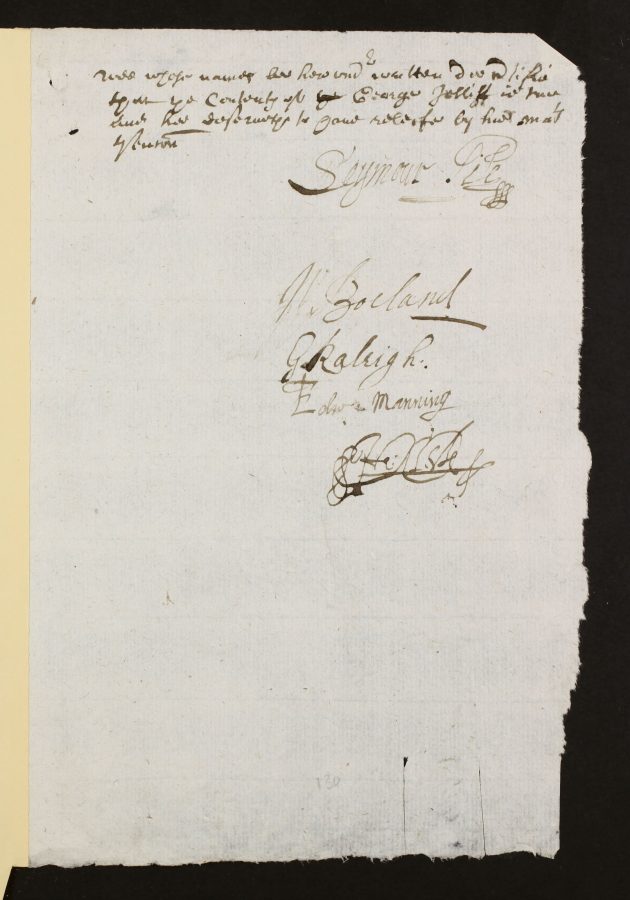 wee whose names bee hereund^r written doe
that ye Contents of George Jolliff is true
and hee deserveth to have releife by his Ma^ts

Seymour Pile
W: Boeland
G Raleigh.
Edw: Manning
130